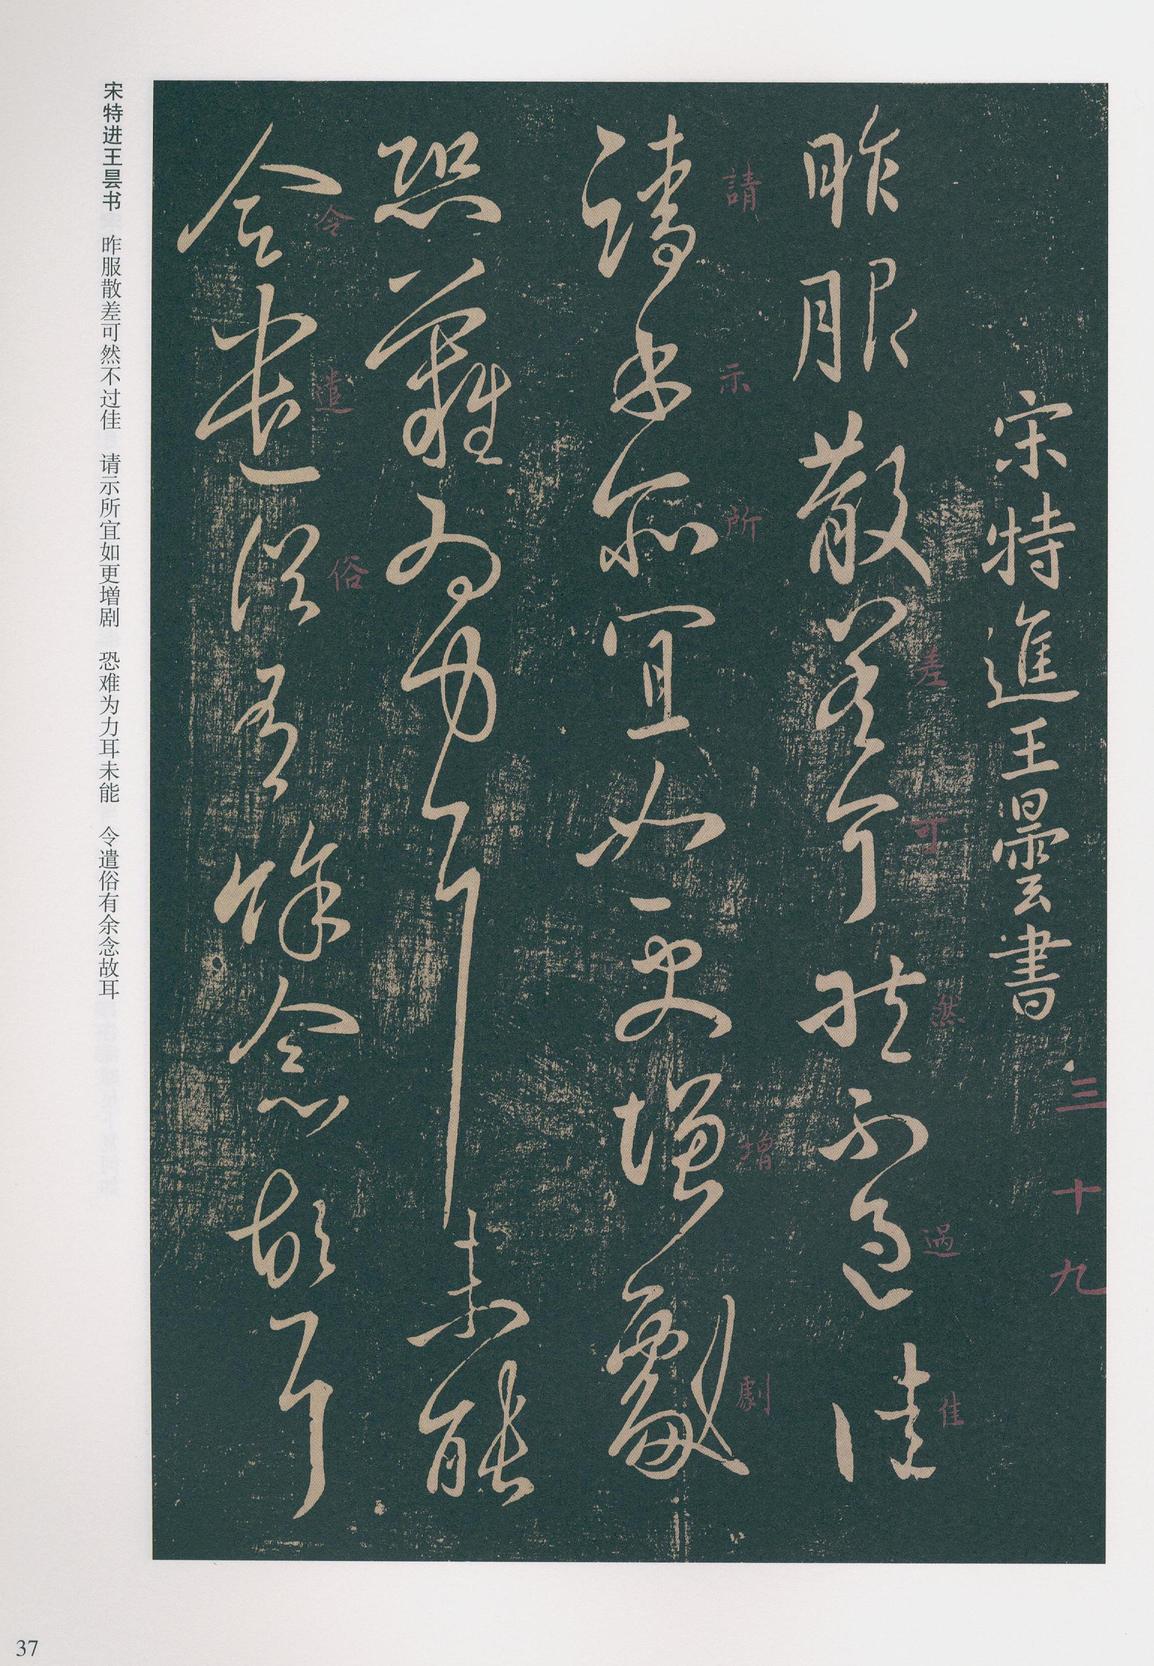 宋特進王曇書
三十九
昨服散差可然不過佳
差
可
然
過
佳
請示所宜如更增劇
請
示
所
增
劇
恐難為力耳未能
令遣俗有餘念故耳
令
遣
俗
宋特进王昙书 昨服散差可然不过佳 请示所宜如更增剧 恐难为力耳未能 令遣俗有余念故耳
37